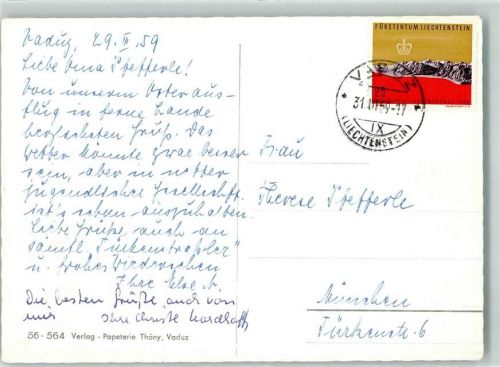 Vaduz, 29. III. 59
Liebe Oma Pfefferle!
Von unserem Osteraus-
flug in ferne Lande
herzlichsten Gruß. Das
Wetter könnte zwar besser
sein, aber in netter
jugendlicher Gesellschaft
ist's schon auszuhalten.
Liebe Grüße, auch an
sämtl. "Türkensträßler"
u. frohes Wiedersehen
Ihre
Die besten Grüße auch von
mir Ihre Christl
56 - 564 Verlag - Papeterie Thöny, Vaduz
FÜRSTENTUM LIECHTENSTEIN
VADUZ
31.III.59-17
IX
(LIECHTENSTEIN)
Frau
Therese Pfefferle
München
Türkenstr. 6